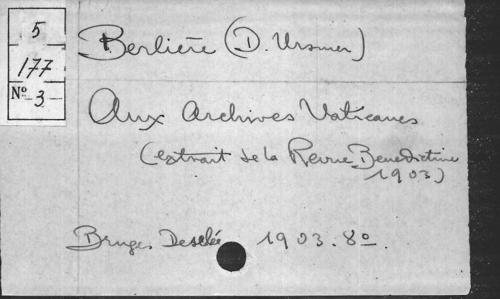 5
177
Nº 3
Berlière (D. Ursmer)
Aux Archives Vaticanes
(extrait de la Revue Benedictine
1903)
Bruges Desclée 1903. 8º.